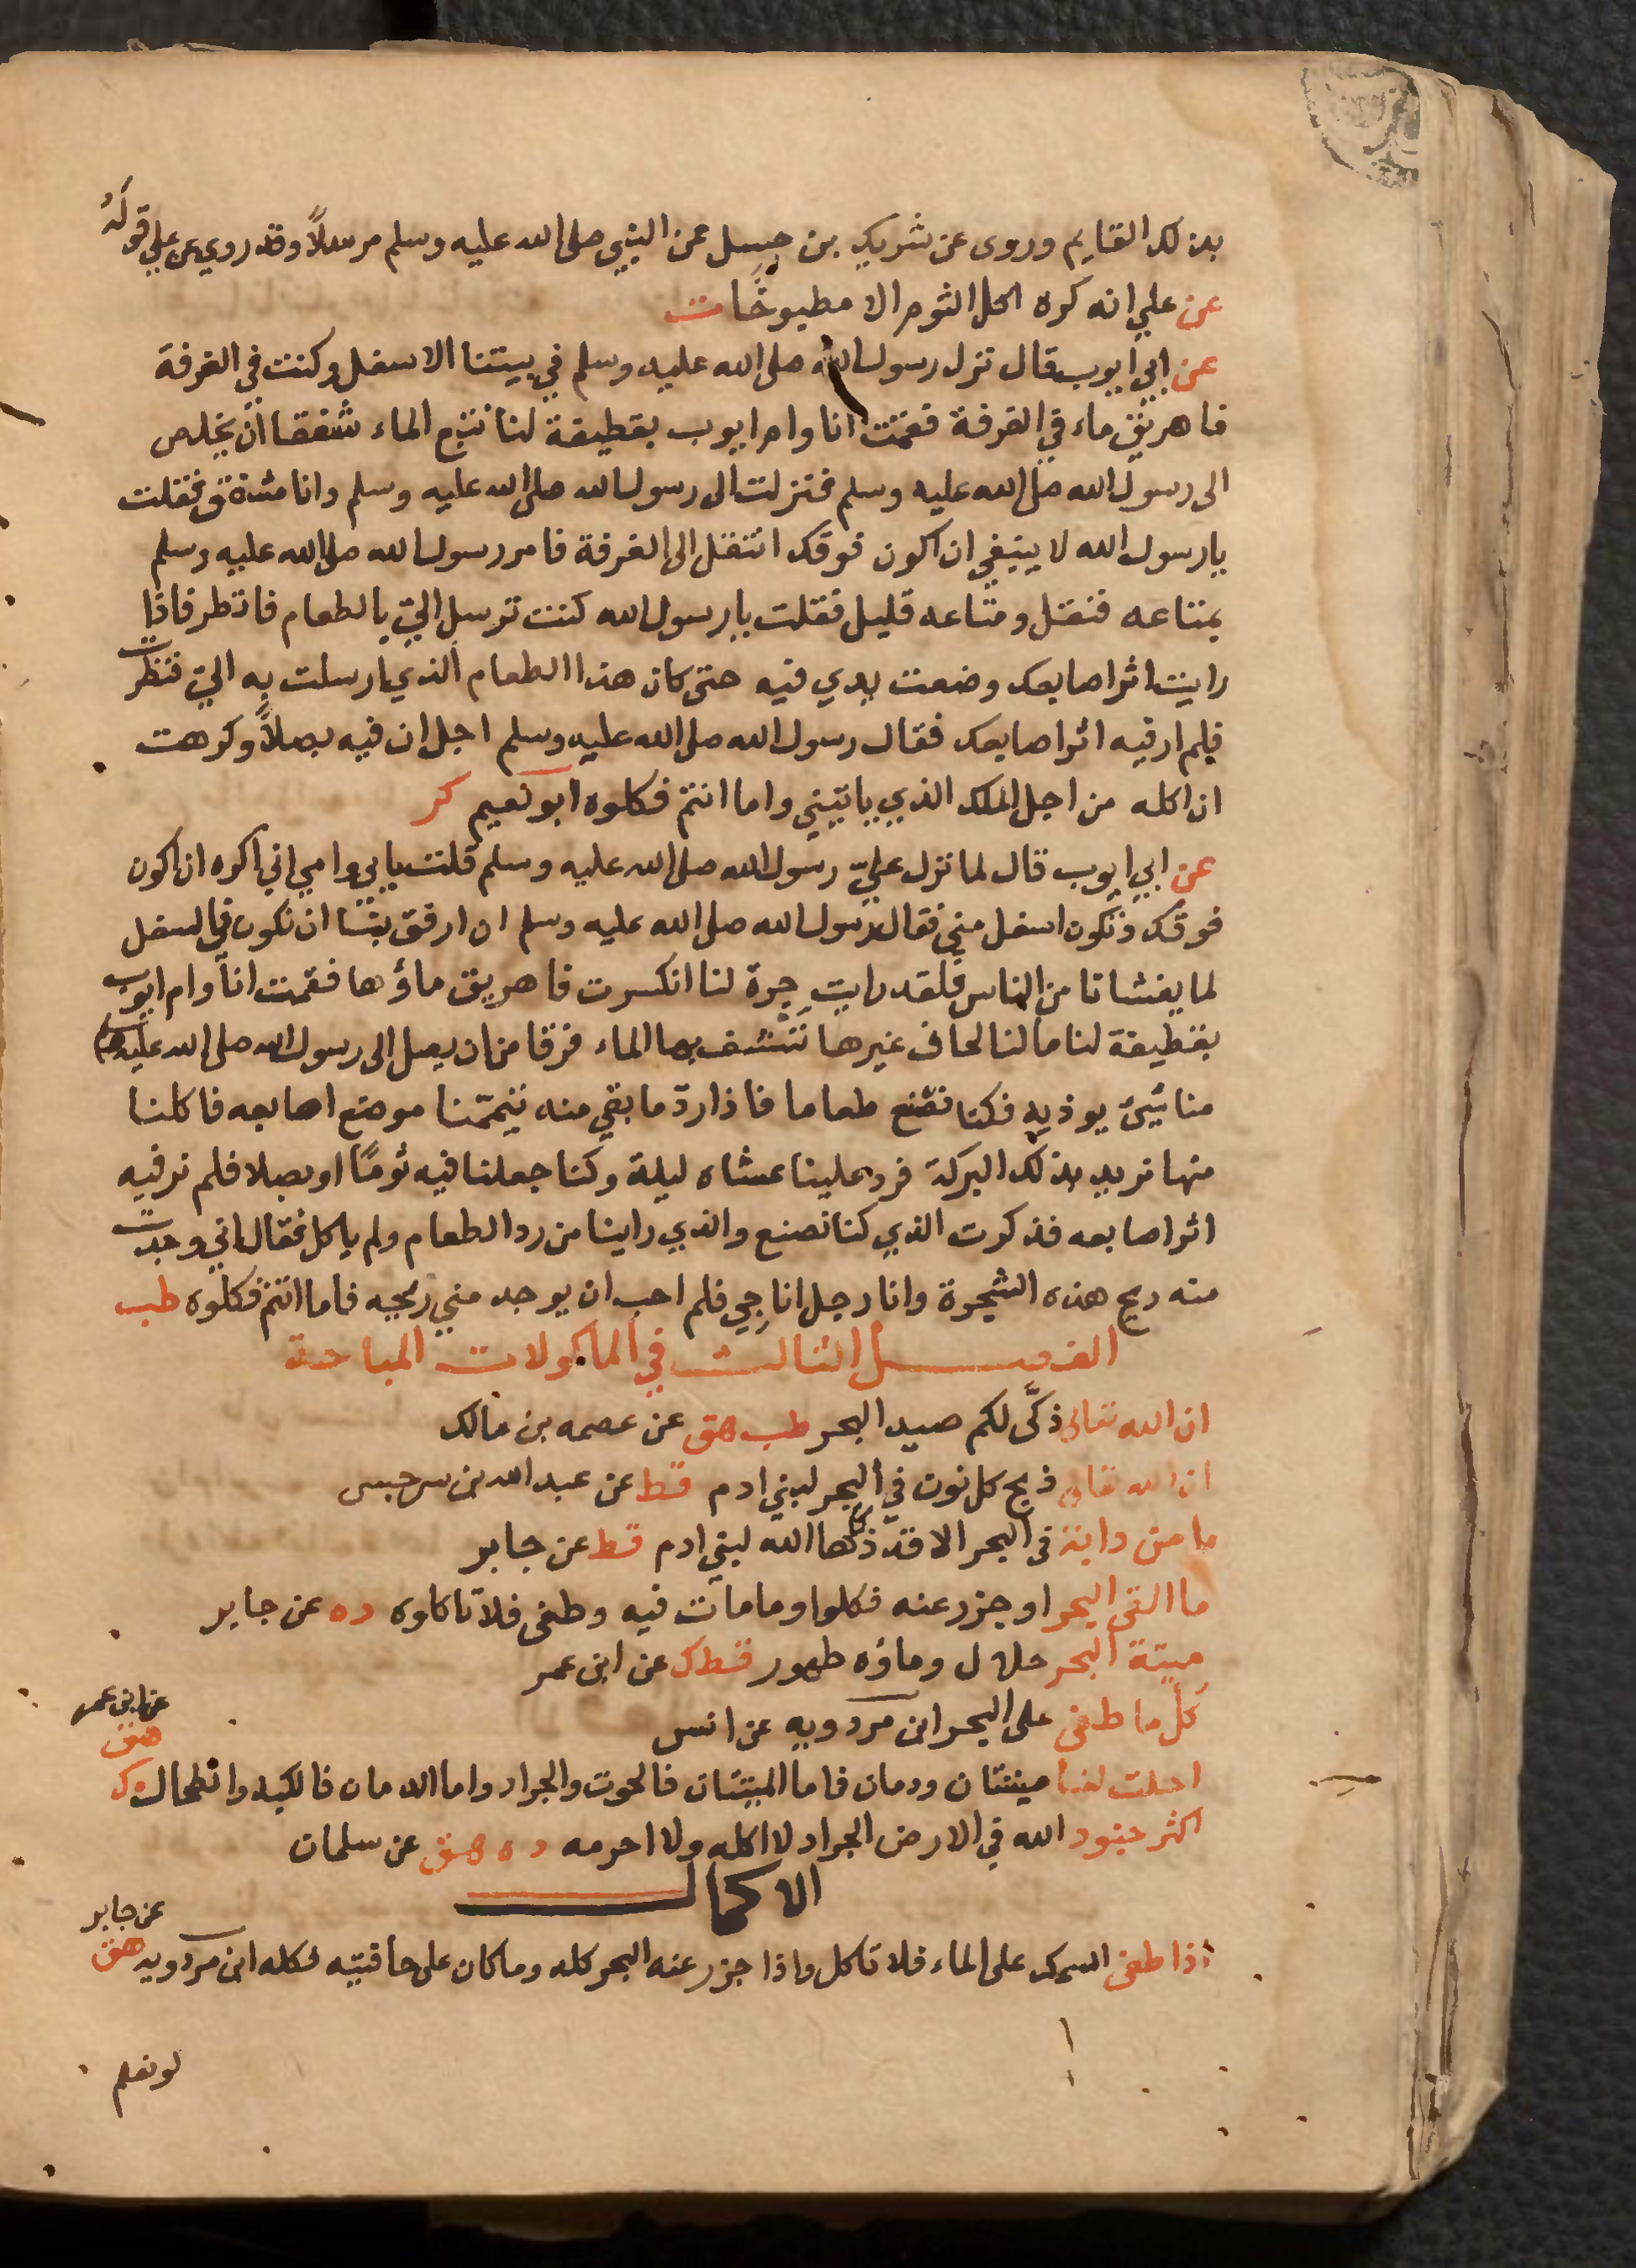 بذلك القايم وروى عن شريك بن حبسل عن النبي صلى الله عليه وسلم مرسلاً وقد روي عن علي قوله
عن علي انه كره اكل الثوم الا مطبوخا ت
عن ابي ايوب قال نزل رسول الله صلى الله عليه وسلم في بيتنا الاسفل وكنت في الغرفة
فاهريق ماء في الغرفة فقمت انا وام ايوب بقطيفة لنا نتبع الماء شفقا ان يخلص
الى رسول الله صلى الله عليه وسلم فنزلت الى رسول الله صلى الله عليه وسلم وانا مشفق فقلت
يا رسول الله لا ينبغي ان اكون فوقك انتقل الى الغرفة فامر رسول الله صلى الله عليه وسلم
بمتاعه فنقل ومتاعه قليل فقلت يا رسول الله كنت ترسل اليّ بالطعام فانظر فاذا
رايت اثر اصابعك وضعت يدي فيه حتى كان هذا الطعام الذي ارسلت به اليّ فنظرت
فلم ار فيه اثر اصابعك فقال رسول الله صلى الله عليه وسلم اجل ان فيه بصلاً وكرهت
ان اكله من اجل الملك الذي ياتيني واما انتم فكلوه ابو نعيم كر
عن ابي ايوب قال لما نزل عليّ رسول الله صلى الله عليه وسلم قلت بابي وامي اني اكره ان اكون
فوقك وتكون اسفل مني فقال رسول الله صلى الله عليه وسلم ان ارفق بنا ان نكون في السفل
لما يغشانا من الناس فلقد رايت جرة لنا انكسرت فاهريق ماؤها فقمت انا وام ايوب
بقطيفة لنا ما لنا لحاف غيرها ننشف بها الماء فرقا من ان يصل الى رسول الله صلى الله عليه وسلم
منا شيئ يوذيه فكنا نصنع طعاما فاذا ردّ ما بقي منه تيممّنا موضع اصابعه فاكلنا
منها نريد بذلك البركة فرد علينا عشاه ليلة وكنا جعلنا فيه ثومًا او بصلا فلم نر فيه
اثر اصابعه فذكرت الذي كنا نصنع والذي راينا من رد الطعام ولم ياكل فقال اني وجدت
منه ريح هذه الشجرة وانا رجل اناجي فلم احب ان يوجد مني ريحيه فاما انتم فكلوه طب
الفصل الثالث في الماكولات المباحة
ان الله تعالى ذكّى لكم صيد البحر طب هق عن عصمه بن مالك
ان الله تعالى ذبح كل نون في البحر لبني ادم قط عن عبد الله بن سرجس
ما من دابة في البحر الا قد ذكاها الله لبني ادم قط عن جابر
ما القى البحر او جزر عنه فكلوا وما مات فيه وطفى فلا تاكلوه د ه عن جابر
ميتة البحر حلال وماؤه طهور قط ك عن ابن عمر
كل ما طفى على البحر ابن مردويه عن انس
احلت لنا ميتتان ودمان فاما الميتتان فالحوت والجراد واما الدمان فالكبد والطحال ه ك
هق
عن ابن عمر
اكثر جنود الله في الارض الجراد لا اكله ولا احرمه د ه هق عن سلمان
الاكمال
اذا طفى السمك على الماء فلا تاكل واذا جزر عنه البحر كله وما كان على حافتيه فكله ابن مردويه هق
عن جابر
لو نعلم